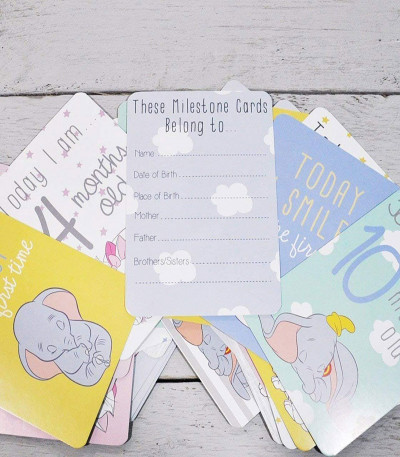 These Milestone Cards
Belong to...
Name
Date of Birth
Place of Birth
Mother
Father
Brothers/Sisters
Today I am
4 months
old
first time
TODAY
SMILE
first
10
old